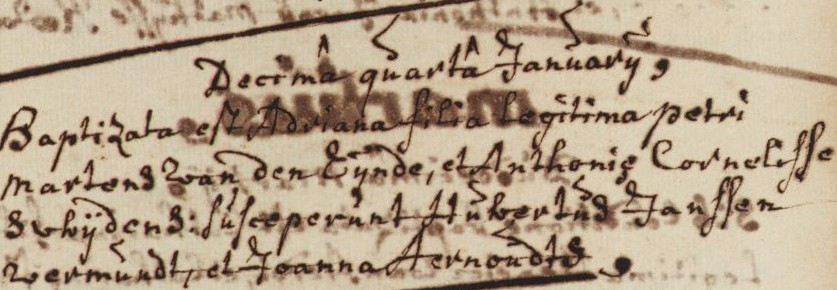 Decimâ quartâ Januarij,
Baptizata est Adriana filia legitima petri
martens van den Eijnde, et Anthonie Cornelisse
swijdens: susceperunt Hubertus Janssen
vermundt, et Joanna Aernoudts,